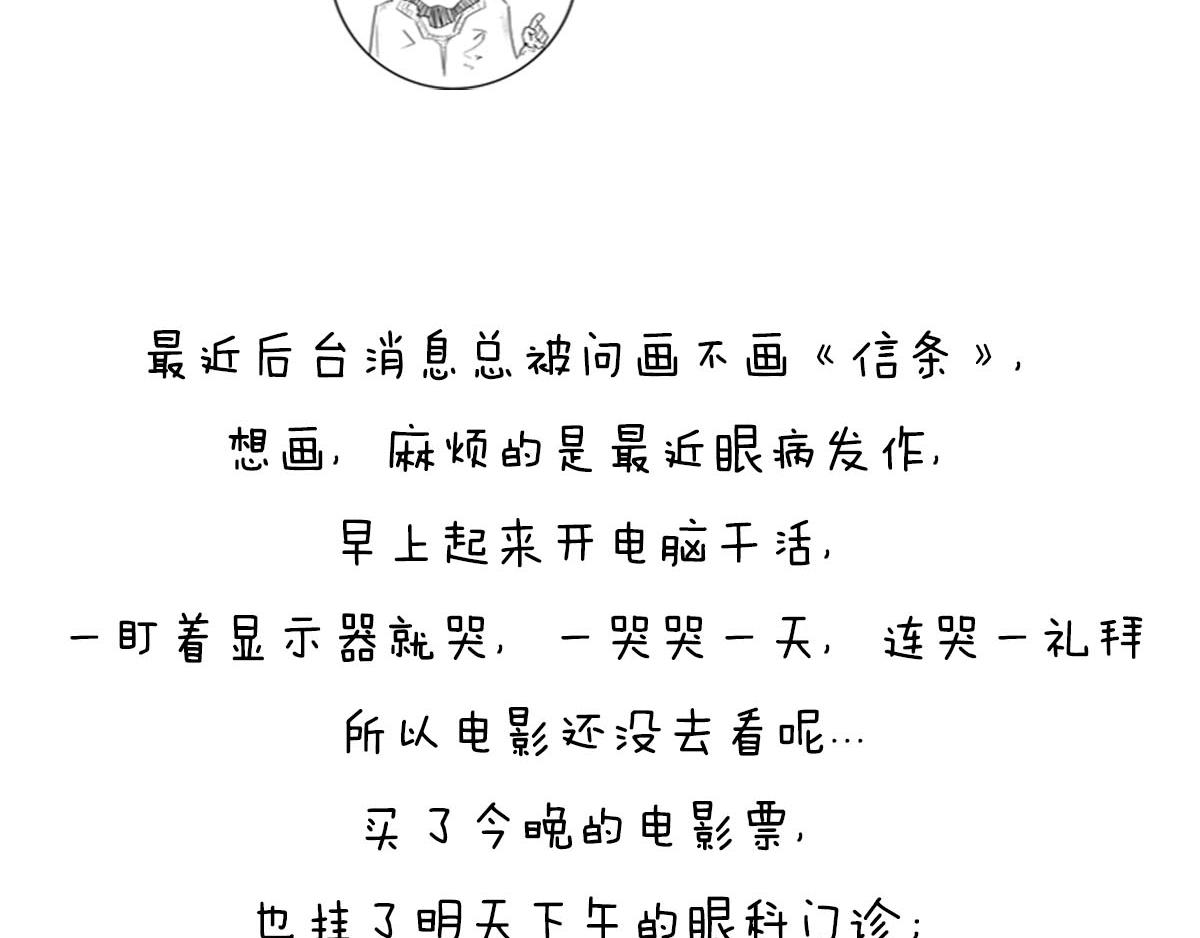 最近后台消息总被问画不画《信条》,
想画, 麻烦的是最近眼病发作,
早上起来开电脑干活,
一盯着显示器就哭, 一哭哭一天, 连哭一礼拜
所以电影还没去看呢...
买了今晚的电影票,
也挂了明天下午的眼科门诊;